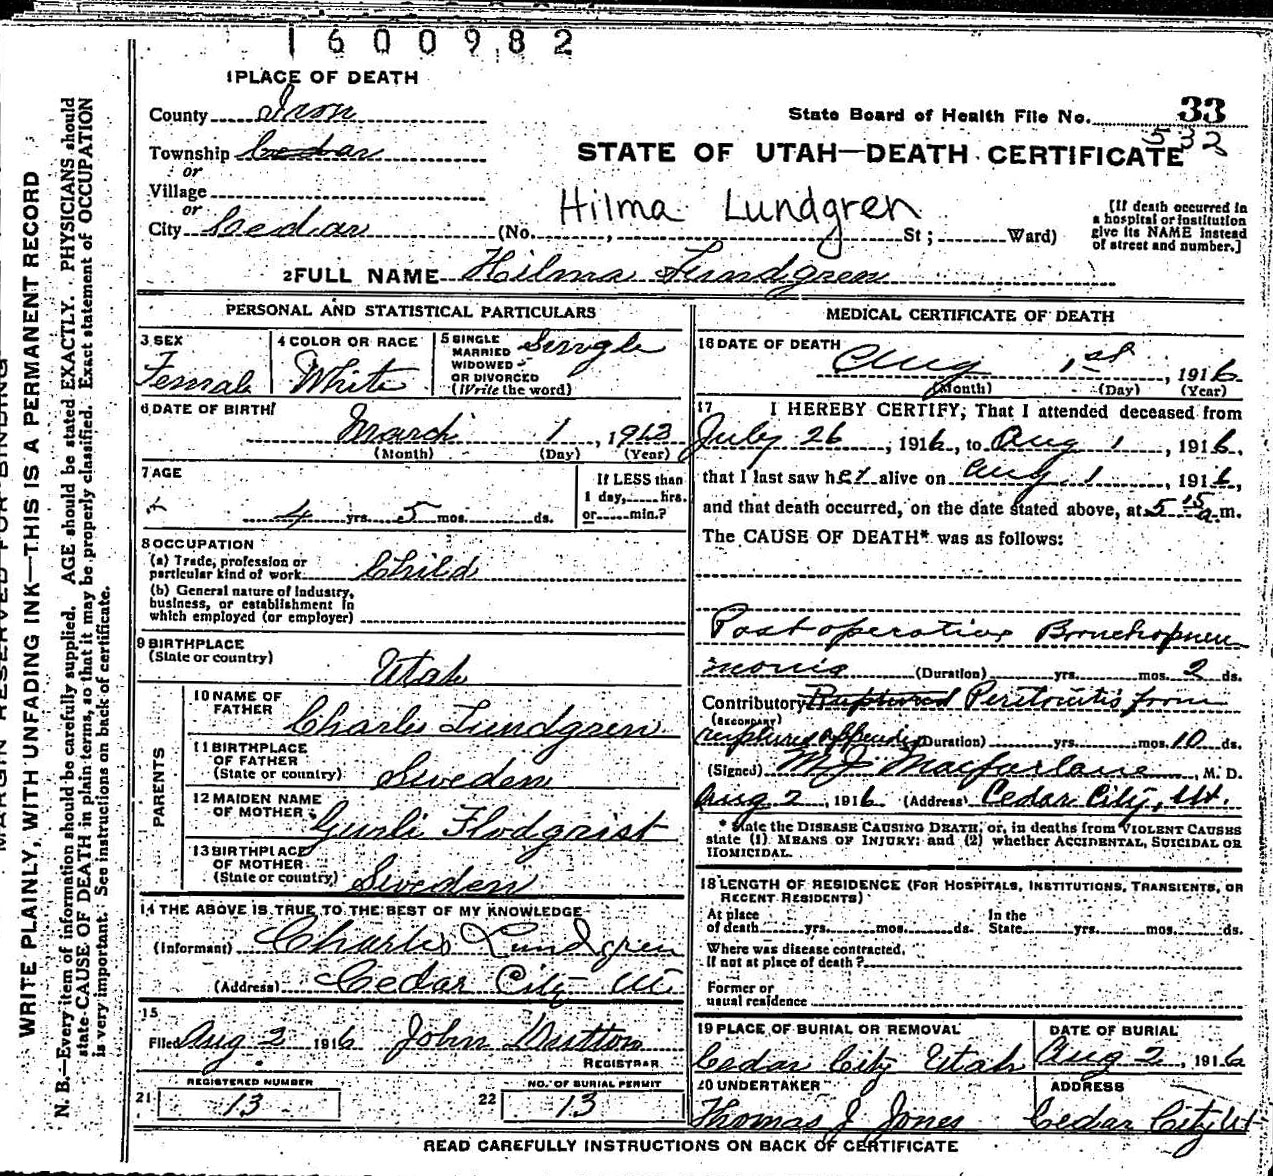 1600982
1 PLACE OF DEATH
County Iron
State Board of Health File No. 33
532
Township Cedar
STATE OF UTAH—DEATH CERTIFICATE
or
Village
or
Hilma Lundgren
City Cedar (No. , St; Ward)
[If death occurred in
a hospital or institution
give its NAME instead
of street and number.]
2 FULL NAME Hilma Lundgren
PERSONAL AND STATISTICAL PARTICULARS
3 SEX
Female
4 COLOR OR RACE
White
5 SINGLE
MARRIED
WIDOWED
OR DIVORCED
(Write the word)
Single
6 DATE OF BIRTH
March 1, 1912
(Month) (Day) (Year)
7 AGE
4 yrs. 5 mos. ds.
If LESS than
1 day, hrs.
or min.?
8 OCCUPATION
(a) Trade, profession or
particular kind of work Child
(b) General nature of Industry,
business, or establishment in
which employed (or employer)
9 BIRTHPLACE
(State or country) Utah
PARENTS
10 NAME OF
FATHER Charles Lundgren
11 BIRTHPLACE
OF FATHER
(State or country) Sweden
12 MAIDEN NAME
OF MOTHER Gurli Flodqvist
13 BIRTHPLACE
OF MOTHER
(State or country) Sweden
14 THE ABOVE IS TRUE TO THE BEST OF MY KNOWLEDGE
(Informant) Charles Lundgren
(Address) Cedar City Ut
15
Filed Aug 2 1916 John
REGISTRAR
REGISTERED NUMBER
21 13
NO. OF BURIAL PERMIT
22 13
MEDICAL CERTIFICATE OF DEATH
16 DATE OF DEATH
Aug 1st, 1916
(Month) (Day) (Year)
17 I HEREBY CERTIFY, That I attended deceased from
July 26, 1916, to Aug 1, 1916,
that I last saw her alive on Aug. 1, 1916,
and that death occurred, on the date stated above, at 5 15 a m.
The CAUSE OF DEATH* was as follows:
Post operative Bronchopneu
monia (Duration) yrs. mos. 2 ds.
Contributory Ruptured Peritonitis from
(SECONDARY)
ruptured appendix (Duration) yrs. mos. 10 ds.
(Signed) M J Macfarlane, M. D.
Aug 2, 1916 (Address) Cedar City, Ut.
* State the DISEASE CAUSING DEATH, or, in deaths from VIOLENT CAUSES
state (1) MEANS OF INJURY: and (2) whether ACCIDENTAL, SUICIDAL OR
HOMICIDAL.
18 LENGTH OF RESIDENCE (FOR HOSPITALS, INSTITUTIONS, TRANSIENTS, OR
RECENT RESIDENTS)
At place In the
of death yrs. mos. ds. State yrs. mos. ds.
Where was disease contracted,
If not at place of death?
Former or
usual residence
19 PLACE OF BURIAL OR REMOVAL
Cedar City Utah
DATE OF BURIAL
Aug 2, 1916
20 UNDERTAKER
Thomas J Jones
ADDRESS
Cedar City Ut
READ CAREFULLY INSTRUCTIONS ON BACK OF CERTIFICATE
MARGIN RESERVED FOR BINDING
WRITE PLAINLY, WITH UNFADING INK—THIS IS A PERMANENT RECORD
N. B.—Every item of information should be carefully supplied. AGE should be stated EXACTLY. PHYSICIANS should
state CAUSE OF DEATH in plain terms, so that it may be properly classified. Exact statement of OCCUPATION
is very important. See instructions on back of certificate.